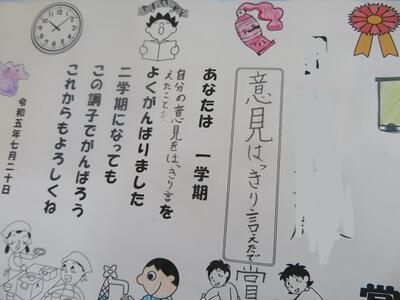 賞
意見はっきり言えたで賞
あなたは 一学期
自分の意見をはっきり言
えたことを
よくがんばりました
二学期になっても
この調子でがんばろう
これからもよろしくね
令和五年七月二十日